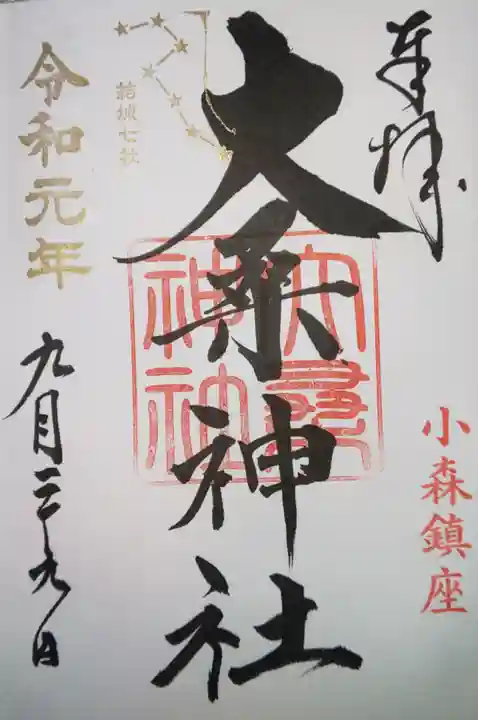 奉拝
小森鎮座
大桒神社
大桑神社
結城七社
令和元年
九月二十九日